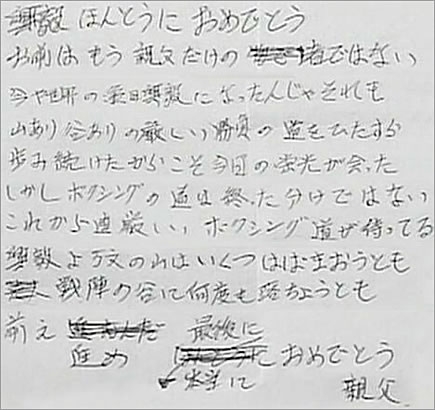 興毅 ほんとうに おめでとう
お前は もう 親父だけの 者ではない
今や世界の 亀田興毅になったんじゃ それも
山あり谷ありの厳しい勝負の道をひたすら
歩み続けたからこそ今日の栄光が会った
しかしボクシングの道は終った分けではない
これから道厳しい ボクシング道が待ってる
興毅よ の山はいくつ はばもおうとも
戦陣の谷に何度も落ちようとも
前え 進め
最後に
本当に おめでとう
親父